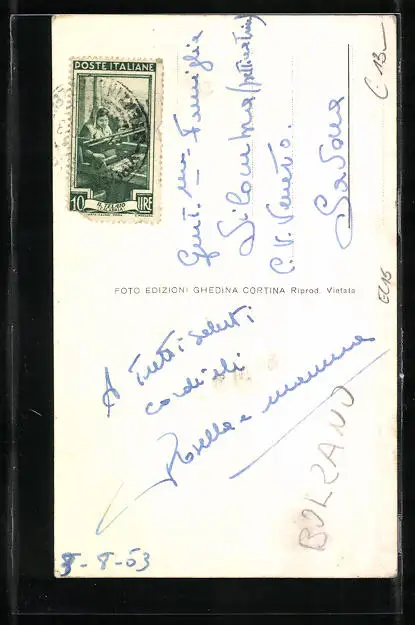 POSTE ITALIANE
10 LIRE
IL TELAIO
Gent.ma Famiglia
C. V. Veneto.
Savona
FOTO EDIZIONI GHEDINA CORTINA Riprod. Vietata
A tutti saluti
cordiali
Rosella e mamma
8-8-53
BOLZANO